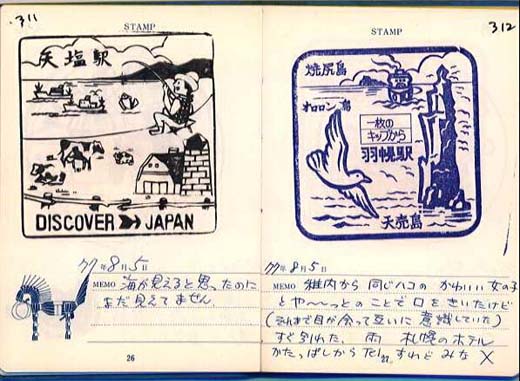 311
STAMP
天塩駅
DISCOVER JAPAN
77年8月5日
MEMO 海が見えると思ったのに
まだ見えてません
26
STAMP
312
焼尻島
オロロン鳥
一枚の
キップから
羽幌駅
天売島
77年8月5日
MEMO 稚内から同じハコのかわいい女の子
とや〜〜っとのことで口をきいたけど
(それまで目が会って互いに意識していた)
すぐ別れた、雨 札幌のホテル
かたっぱしからTELすれどみな X